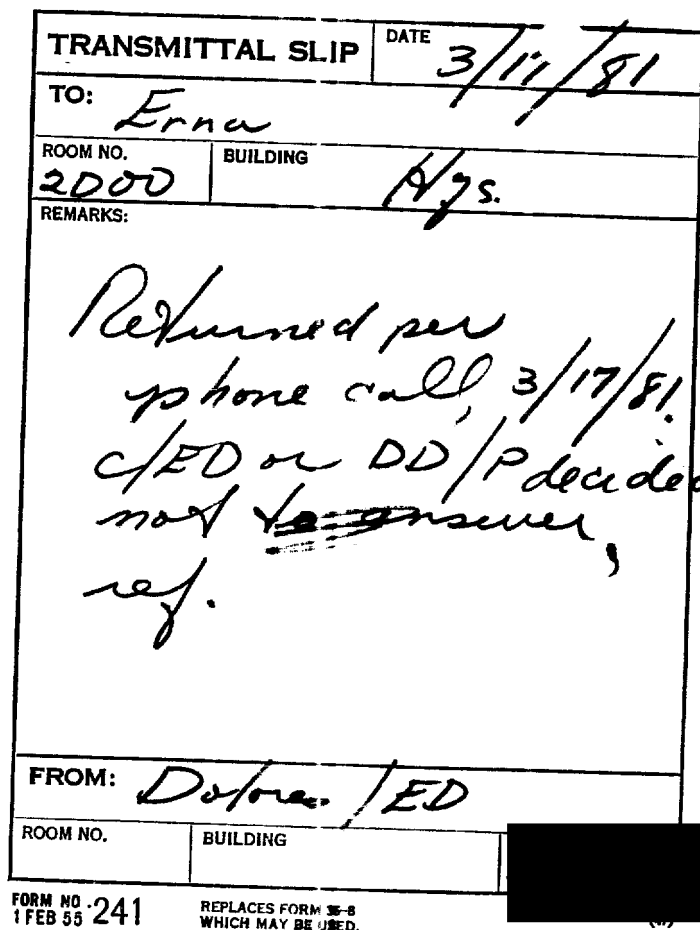 TRANSMITTAL SLIP
DATE 3/17/81
TO: Erna
ROOM NO. 2D00
BUILDING Hqs.
REMARKS:
Returned per
phone call, 3/17/81.
c/ED or DD/P decided
not to answer,
ref.
FROM: Dolores /ED
ROOM NO.
BUILDING
FORM NO. 241
1 FEB 55
REPLACES FORM 36-8
WHICH MAY BE USED.